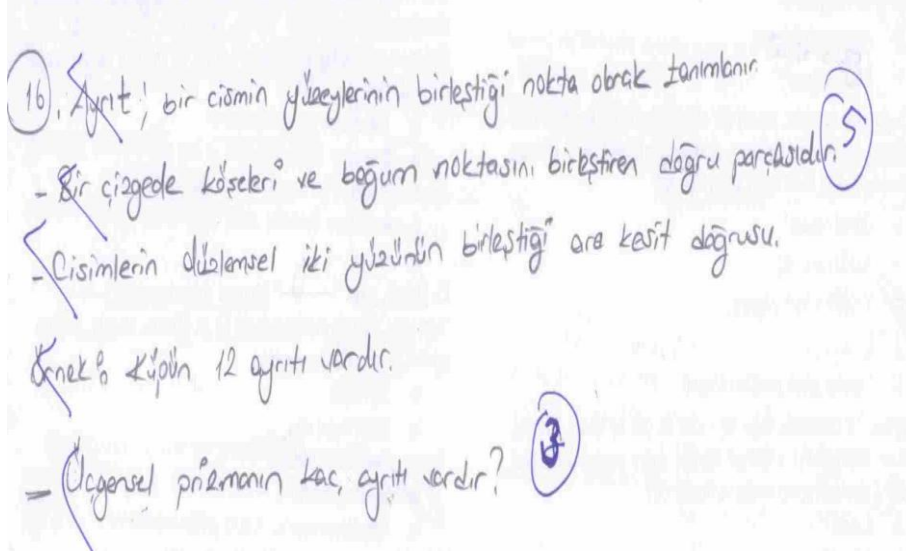 16. Ayrıt; bir cismin yüzeylerinin birleştiği nokta olarak tanımlanır.
5
- Bir çizgede köşeleri ve boğum noktasını birleştiren doğru parçasıdır.
- Cisimlerin düzlemsel iki yüzünün birleştiği ara kesit doğrusu.
Örnek: Küpün 12 ayrıtı vardır.
- Üçgensel prizmanın kaç ayrıtı vardır?